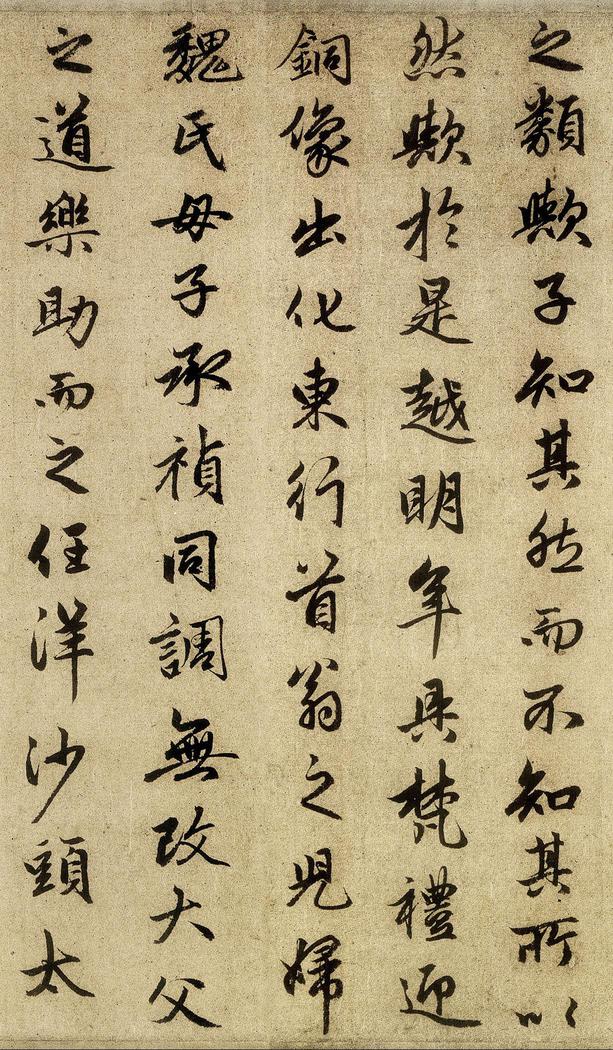 之類歟子知其然而不知其所以
然歟於是越明年具梵禮迎
銅像出化東行首翁之兒婦
魏氏母子承禎同調無改大父
之道樂助而之任洋沙頭太